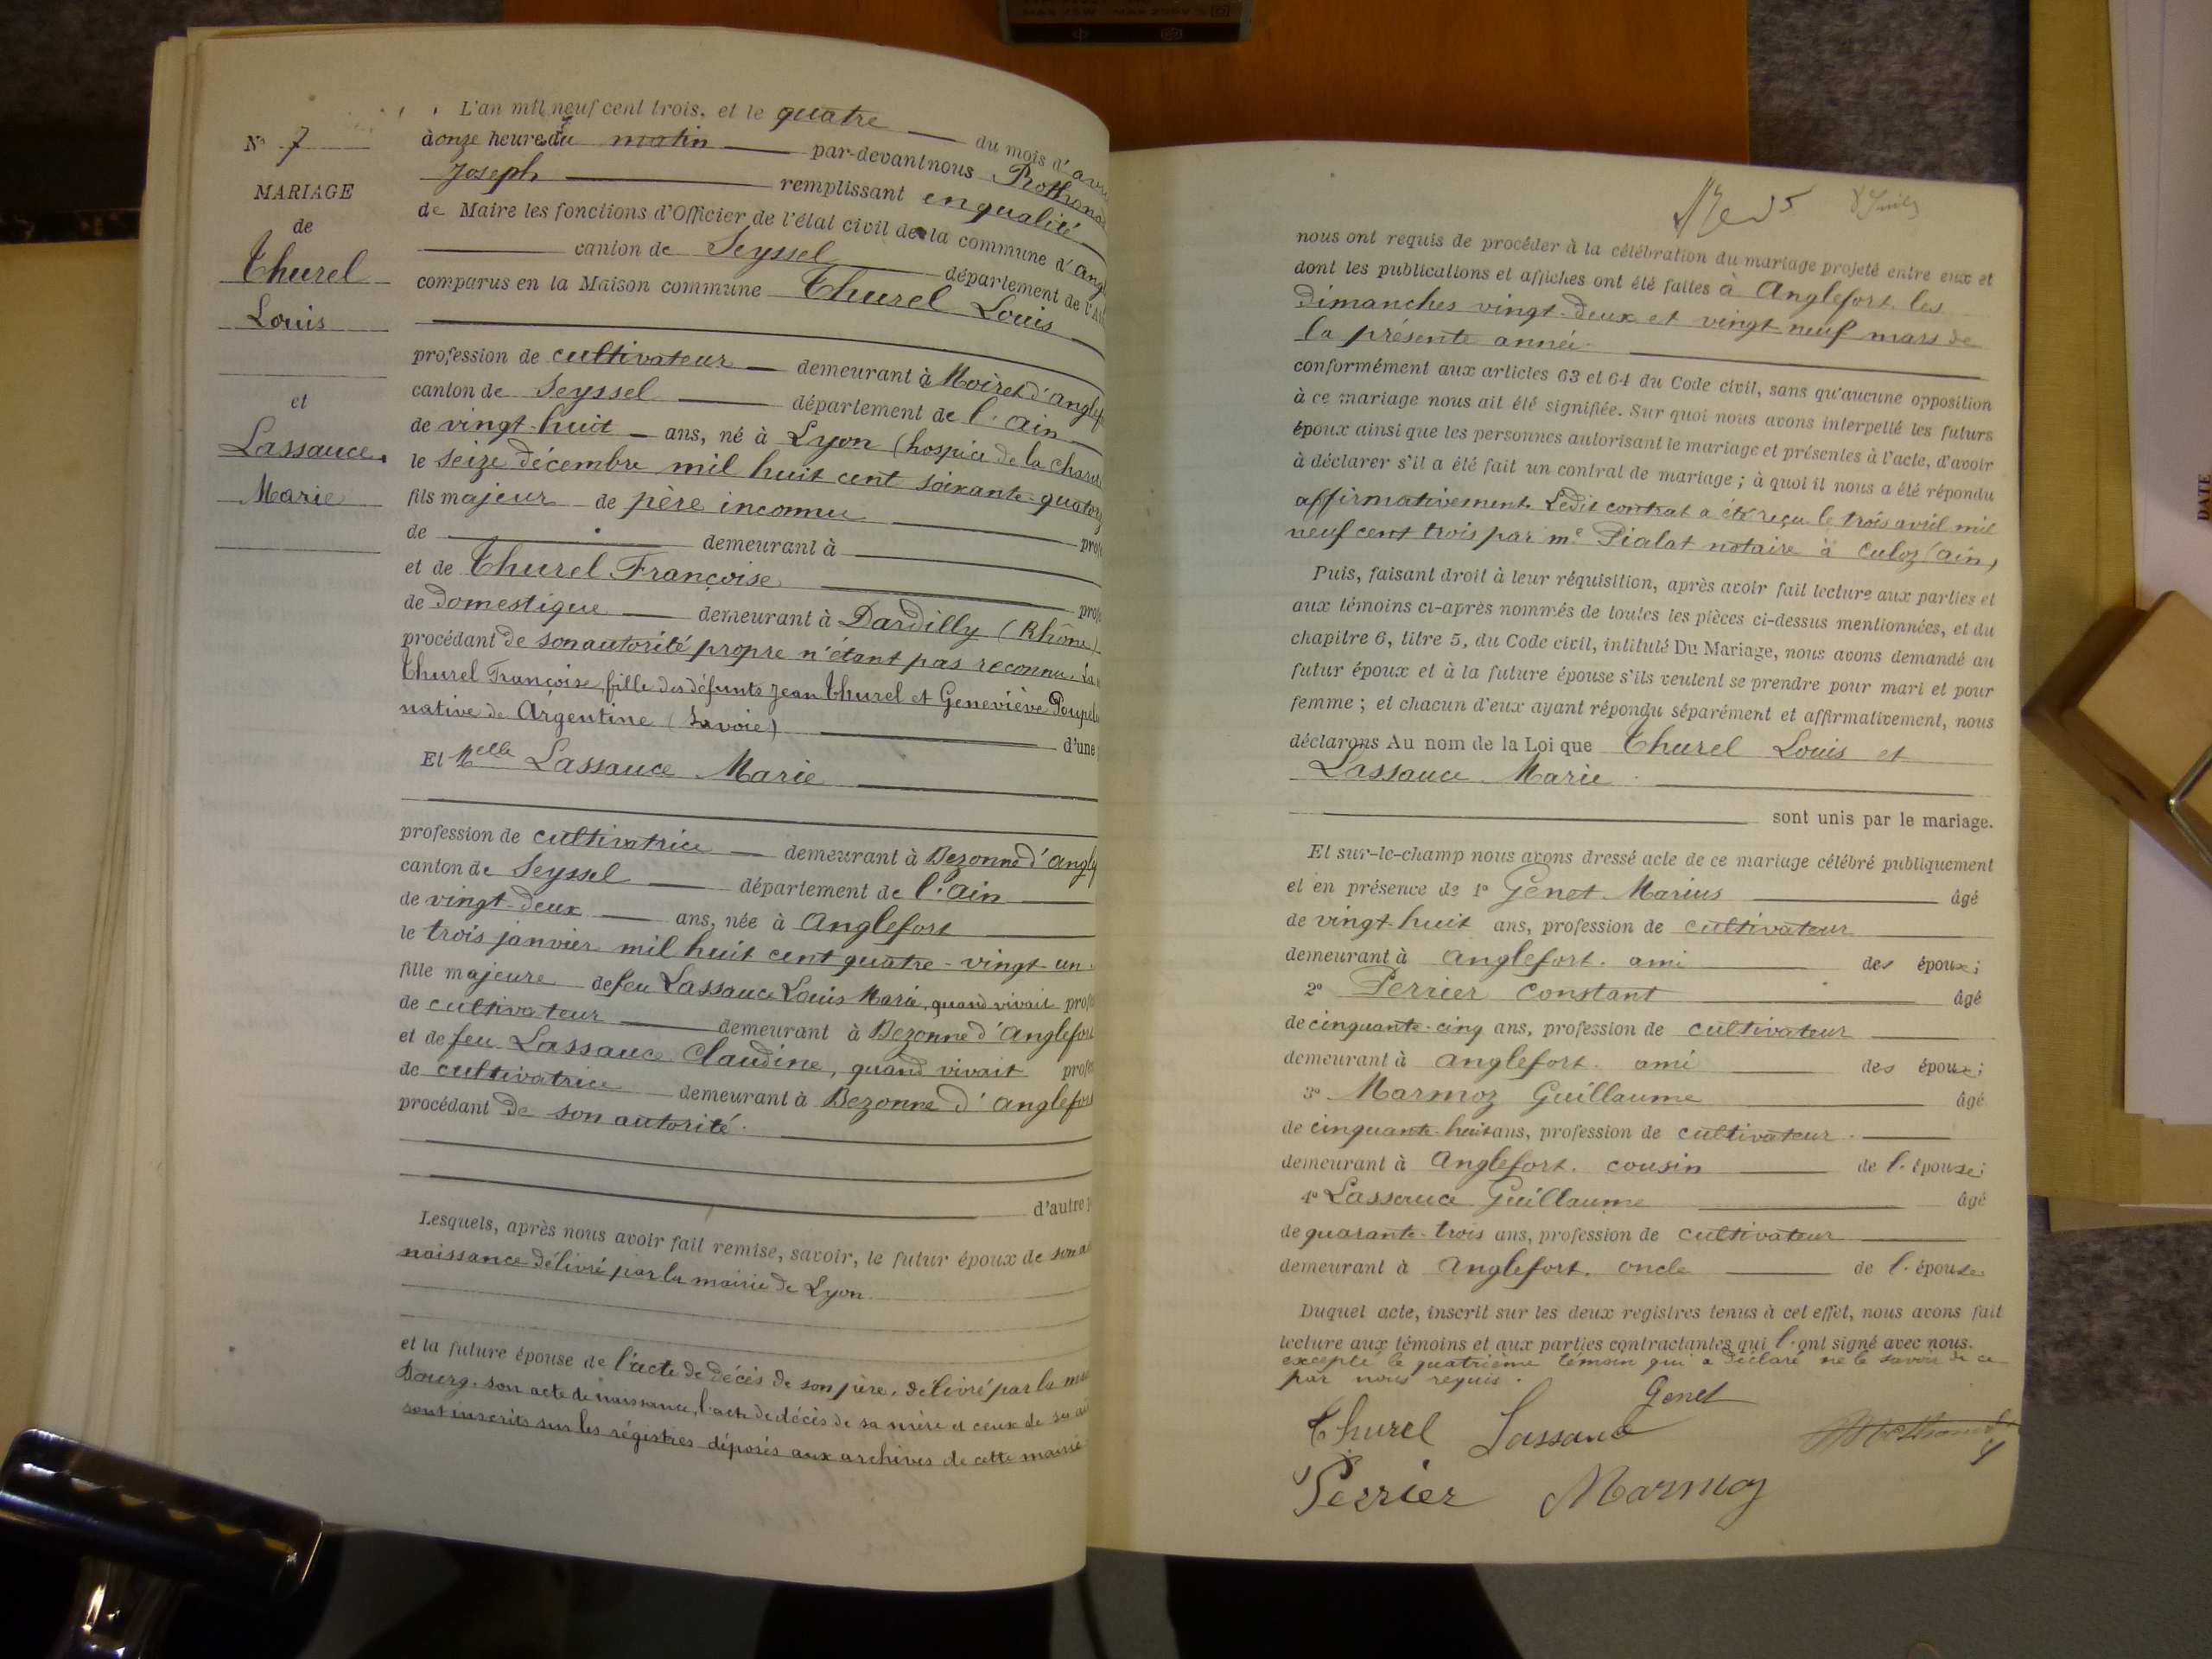 N° 7
MARIAGE
de
Thurel
Louis
et
Lassauce
Marie
L'an mil neuf cent trois, et le quatre du mois d'
à onze heures du matin par-devant nous
Joseph remplissant en qualité
de Maire les fonctions d'Officier de l'état civil de la commune d'
canton de Seyssel département de l'
comparus en la Maison commune Thurel Louis
profession de cultivateur demeurant à
canton de Seyssel département de l'Ain
de vingt-huit ans, né à Lyon (hospice de la
le seize décembre mil huit cent soixante-
fils majeur de père inconnu
de demeurant à
et de Thurel Françoise
de domestique demeurant à Dardilly (Rhône)
procédant de son autorité propre n'étant pas reconnu.
Thurel Françoise fille des défunts Jean Thurel et Geneviève
native de Argentine (Savoie) d'une
Et Melle Lassauce Marie
profession de cultivatrice demeurant à Bezonne d'
canton de Seyssel département de l'Ain
de vingt-deux ans, née à Anglefort
le trois janvier mil huit cent quatre-vingt-un
fille majeure de feu Lassauce Louis Marie, quand vivait
de cultivateur demeurant à Bezonne d'Anglefort
et de feu Lassauce Claudine, quand vivait
de cultivatrice demeurant à Bezonne d'Anglefort
procédant de son autorité.
d'autre
Lesquels, après nous avoir fait remise, savoir, le futur époux de son
naissance délivré par la mairie de Lyon
et la future épouse de l'acte de décès de son père, délivré par la
Bourg. son acte de naissance, l'acte de décès de sa mère et ceux de ses
sont inscrits sur les régistres déposés aux archives de cette mairie
nous ont requis de procéder à la célébration du mariage projeté entre eux et
dont les publications et affiches ont été faites à Anglefort les
dimanches vingt-deux et vingt neuf mars de
la présente année.
conformément aux articles 63 et 64 du Code civil, sans qu'aucune opposition
à ce mariage nous ait été signifiée. Sur quoi nous avons interpellé les futurs
époux ainsi que les personnes autorisant le mariage et présentes à l'acte, d'avoir
à déclarer s'il a été fait un contrat de mariage ; à quoi il nous a été répondu
affirmativement. Ledit contrat a été reçu le trois avril mil
neuf cent trois par me Pialat notaire à Culoz (Ain)
Puis, faisant droit à leur réquisition, après avoir fait lecture aux parties et
aux témoins ci-après nommés de toutes les pièces ci-dessus mentionnées, et du
chapitre 6, titre 5, du Code civil, intitulé Du Mariage, nous avons demandé au
futur époux et à la future épouse s'ils veulent se prendre pour mari et pour
femme ; et chacun d'eux ayant répondu séparément et affirmativement, nous
déclarons Au nom de la Loi que Thurel Louis et
Lassauce Marie
sont unis par le mariage.
Et sur-le-champ nous avons dressé acte de ce mariage célébré publiquement
et en présence de 1° Genet Marius âgé
de vingt-huit ans, profession de cultivateur
demeurant à Anglefort. ami des époux;
2° Perrier Constant âgé
de cinquante-cinq ans, profession de cultivateur
demeurant à Anglefort. ami des époux;
3° Marmoz Guillaume âgé
de cinquante-huit ans, profession de cultivateur.
demeurant à Anglefort. cousin de l'épouse;
4° Lassauce Guillaume âgé
de quarante-trois ans, profession de cultivateur
demeurant à Anglefort. oncle de l'épouse
Duquel acte, inscrit sur les deux registres tenus à cet effet, nous avons fait
lecture aux témoins et aux parties contractantes qui l'ont signé avec nous.
excepté le quatrième témoin qui a déclaré ne le savoir de ce
par nous requis.
Genet
Thurel Lassauce
Perrier Marmoz
DATE